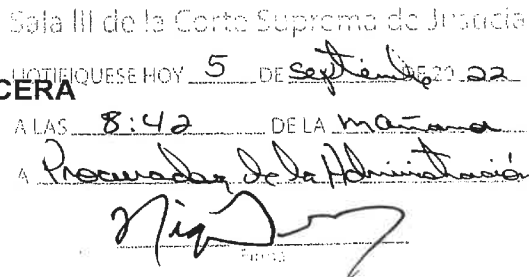 Sala III de la Corte Suprema de Justicia
NOTIFIQUESE HOY 5 DE Septiembre DE 20 22
CERA
A LAS 8:42 DE LA mañana
A Procurador de la Administración
Firma